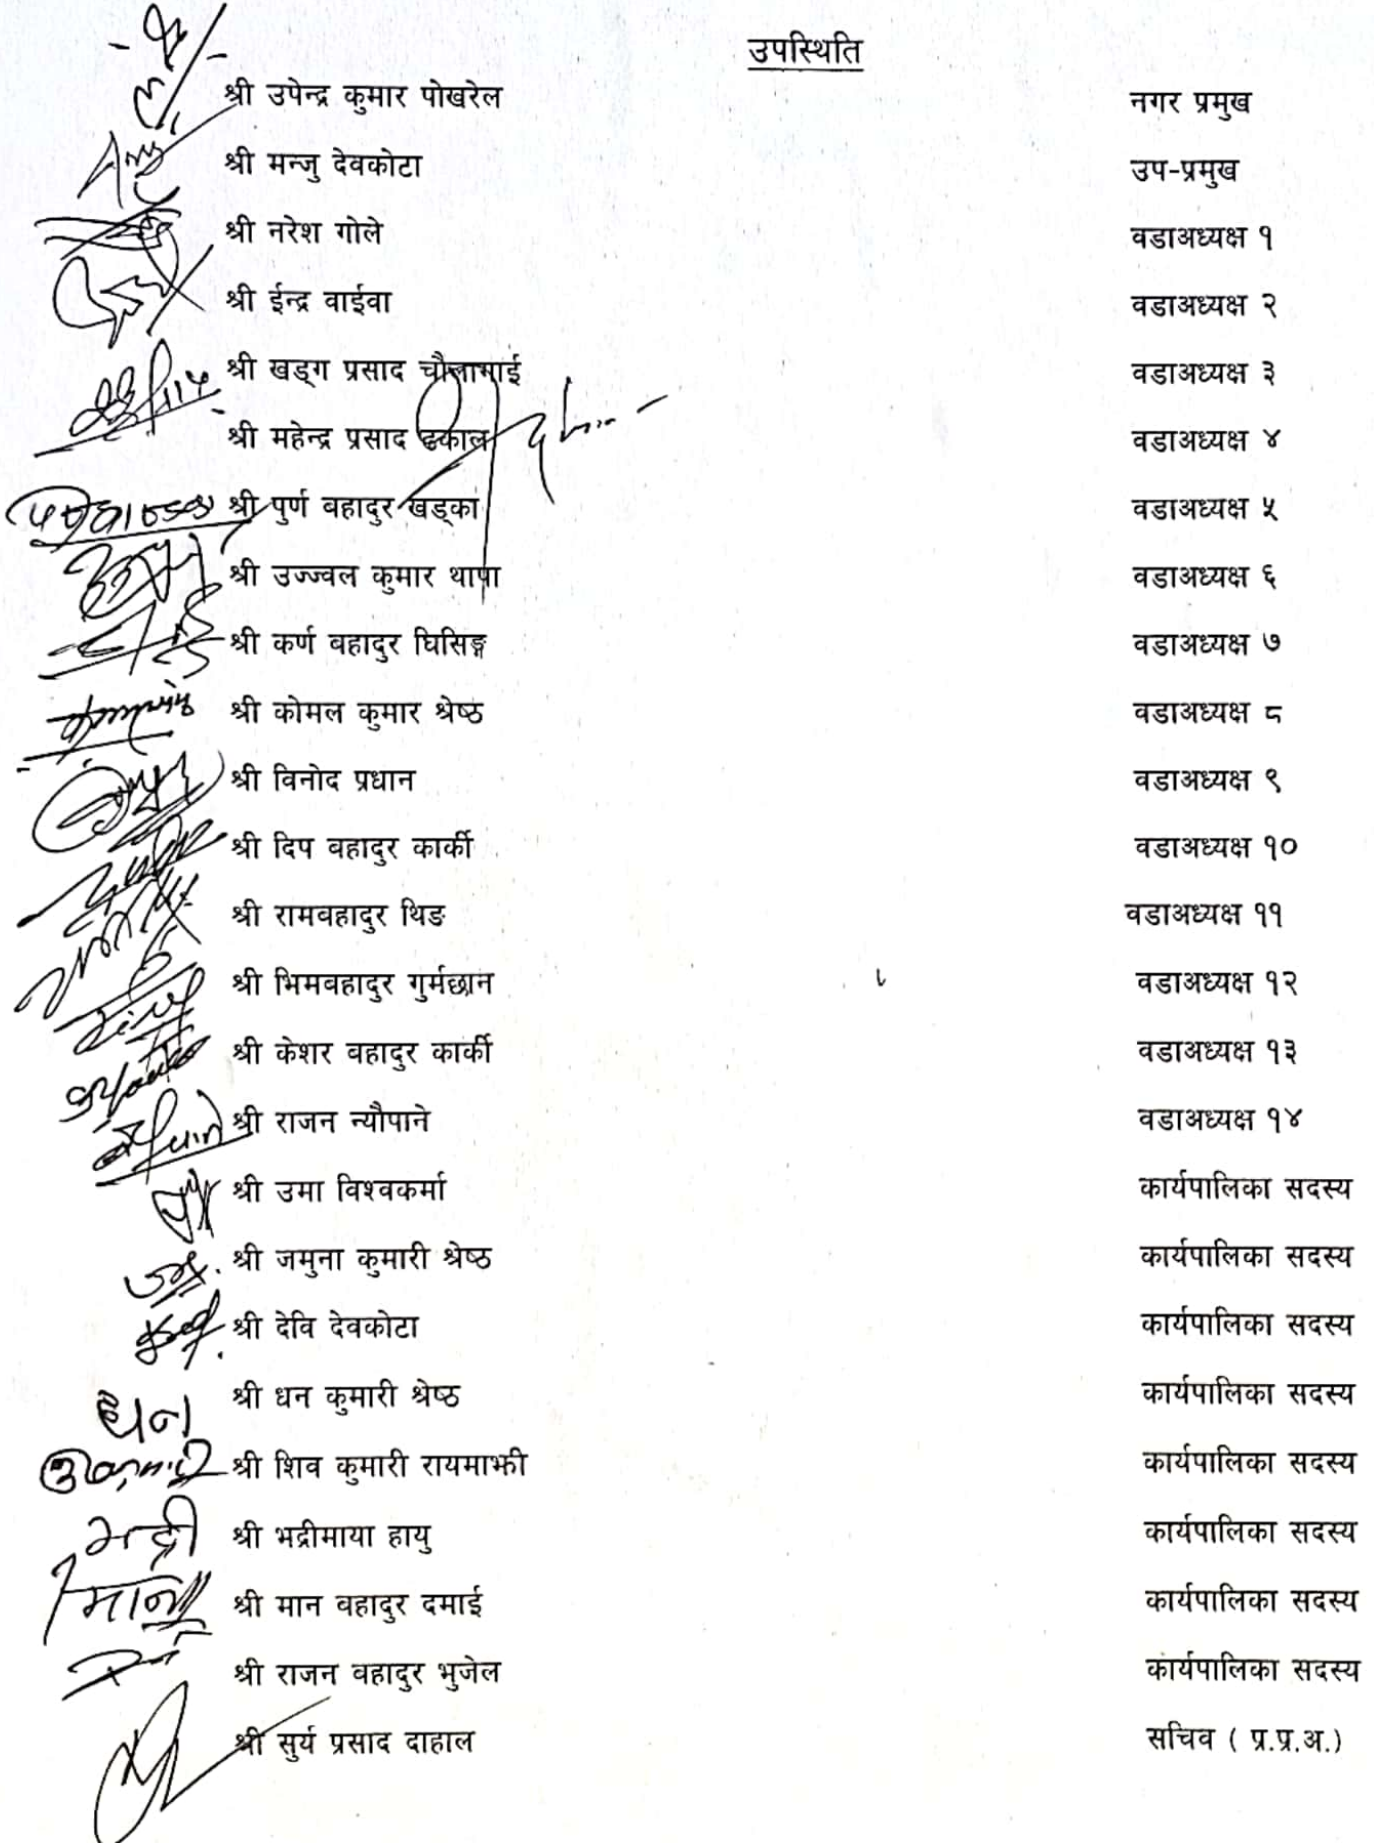 उपस्थिति
श्री उपेन्द्र कुमार पोखरेल नगर प्रमुख
श्री मन्जु देवकोटा उप-प्रमुख
श्री नरेश गोले वडाअध्यक्ष १
श्री ईन्द्र वाईवा वडाअध्यक्ष २
श्री खड्ग प्रसाद चौलागाई वडाअध्यक्ष ३
श्री महेन्द्र प्रसाद ढकाल वडाअध्यक्ष ४
श्री पुर्ण बहादुर खड्का वडाअध्यक्ष ५
श्री उज्ज्वल कुमार थापा वडाअध्यक्ष ६
श्री कर्ण बहादुर घिसिङ्ग वडाअध्यक्ष ७
श्री कोमल कुमार श्रेष्ठ वडाअध्यक्ष ८
श्री विनोद प्रधान वडाअध्यक्ष ९
श्री दिप वहादुर कार्की वडाअध्यक्ष १०
श्री रामवहादुर थिङ वडाअध्यक्ष ११
श्री भिमवहादुर गुर्मछान वडाअध्यक्ष १२
श्री केशर वहादुर कार्की वडाअध्यक्ष १३
श्री राजन न्यौपाने वडाअध्यक्ष १४
श्री उमा विश्वकर्मा कार्यपालिका सदस्य
श्री जमुना कुमारी श्रेष्ठ कार्यपालिका सदस्य
श्री देवि देवकोटा कार्यपालिका सदस्य
धन श्री धन कुमारी श्रेष्ठ कार्यपालिका सदस्य
श्री शिव कुमारी रायमाझी कार्यपालिका सदस्य
भद्री श्री भद्रीमाया हायु कार्यपालिका सदस्य
मान श्री मान वहादुर दमाई कार्यपालिका सदस्य
श्री राजन वहादुर भुजेल कार्यपालिका सदस्य
श्री सुर्य प्रसाद दाहाल सचिव ( प्र.प्र.अ.)